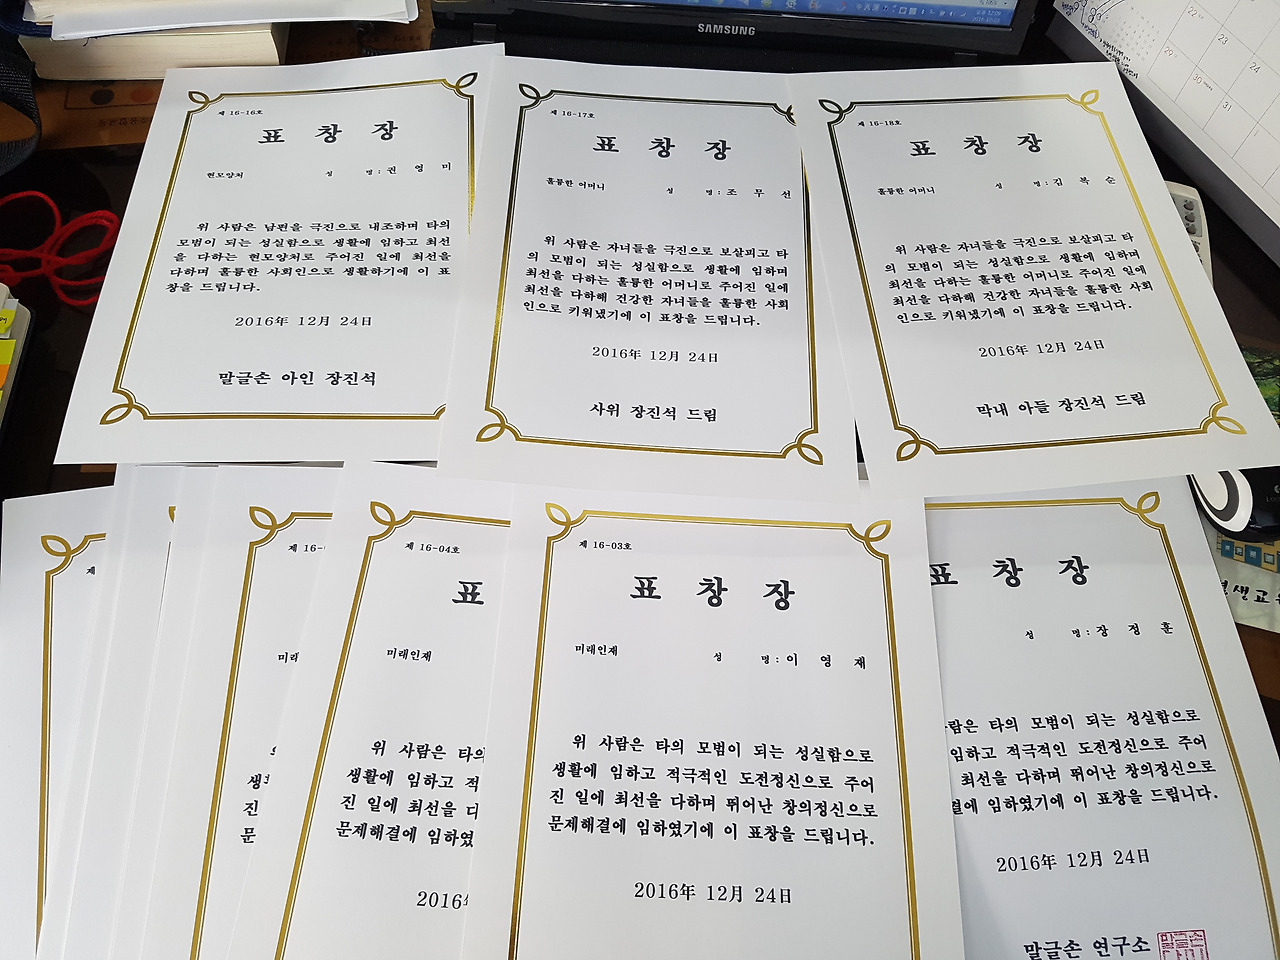 SAMSUNG
22
23
24
29
30
31
제 16-16호
표 창 장
현모양처 성 명 : 권 영 미
위 사람은 남편을 극진으로 내조하며 타의
모범이 되는 성실함으로 생활에 임하고 최선
을 다하는 현모양처로 주어진 일에 최선을
다하며 훌륭한 사회인으로 생활하기에 이 표
창을 드립니다.
2016年 12月 24日
말글손 아인 장진석
제 16-17호
표 창 장
훌륭한 어머니 성 명 : 조 무 선
위 사람은 자녀들을 극진으로 보살피고 타
의 모범이 되는 성실함으로 생활에 임하며
최선을 다하는 훌륭한 어머니로 주어진 일에
최선을 다하해 건강한 자녀들을 훌륭한 사회
인으로 키워냈기에 이 표창을 드립니다.
2016年 12月 24日
사위 장진석 드림
제 16-18호
표 창 장
훌륭한 어머니 성 명 : 김 복 순
위 사람은 자녀들을 극진으로 보살피고 타
의 모범이 되는 성실함으로 생활에 임하며
최선을 다하는 훌륭한 어머니로 주어진 일에
최선을 다하해 건강한 자녀들을 훌륭한 사회
인으로 키워냈기에 이 표창을 드립니다.
2016年 12月 24日
막내 아들 장진석 드림
제
제 16-
미래
생
진
문
제 16-04호
표
미래인재
위 사람은 타의
생활에 임하고 적
진 일에 최선을 다
문제해결에 임하였
2016
제 16-03호
표 창 장
미래인재 성 명 : 이 영 재
위 사람은 타의 모범이 되는 성실함으로
생활에 임하고 적극적인 도전정신으로 주어
진 일에 최선을 다하며 뛰어난 창의정신으로
문제해결에 임하였기에 이 표창을 드립니다.
2016年 12月 24日
표 창 장
성 명 : 장 정 훈
사람은 타의 모범이 되는 성실함으로
임하고 적극적인 도전정신으로 주어
최선을 다하며 뛰어난 창의정신으로
결에 임하였기에 이 표창을 드립니다.
2016年 12月 24日
말글손 연구소